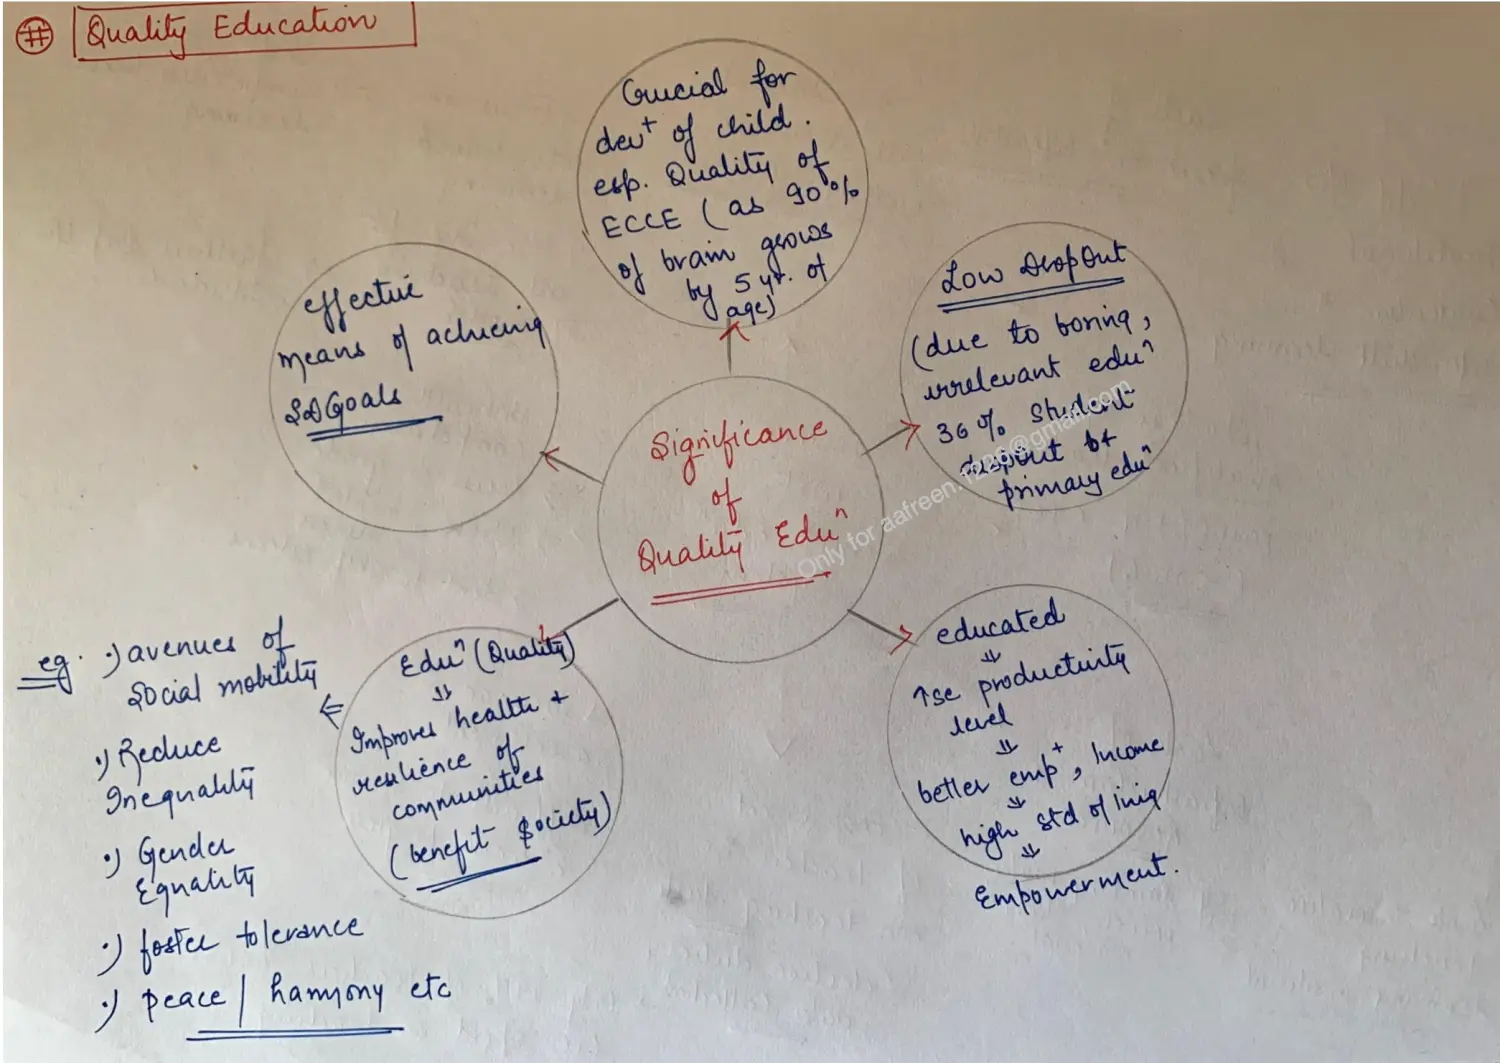 # Quality Education
Crucial for
dev+ of child.
esp. Quality of
ECCE (as 90%
of brain grows
by 5 yr. of
age)
Low DropOut
(due to boring,
irrelevant eduⁿ
36% Student
dropout b4
primary eduⁿ
effective
means of achieving
SDGoals
Significance
of
Quality Eduⁿ
Only for aafreen.1226@gmail.com
educated
⇓
↑se productivity
level
⇓
better emp+, Income
⇓
high std of living
⇓
Empowerment.
Eduⁿ (Quality)
⇓
Improves health +
resilience of
communities
(benefit Society)
⇐
eg. •) avenues of
Social mobility
•) Reduce
Inequality
•) Gender
Equality
•) foster tolerance
•) peace / harmony etc